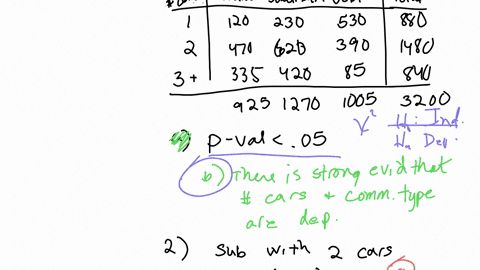 1 120 230 530 880
2 470 620 390 1480
3+ 335 420 85 840
925 1270 1005 3200
X² H₀: Ind.
Hₐ Dep.
a) p-val < .05
b) There is strong evid that
# cars + comm. type
are dep.
2) Sub with 2 cars